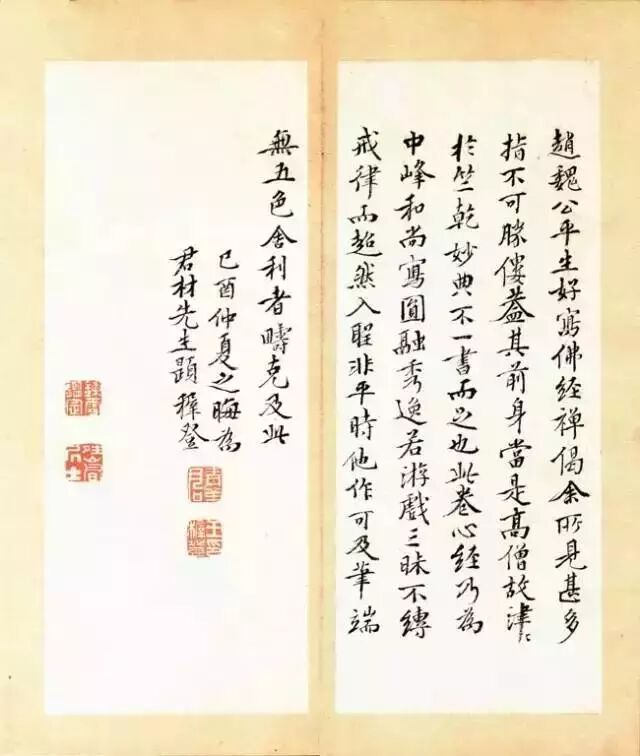 趙魏公平生好寫佛經禅偈余所見甚多
指不可勝僂葢其前身當是髙僧故津〻
扵竺乾妙典不一書而足也此卷心經乃為
中峰和尚寫圓融秀逸若游戲三昧不縛
戒律而超然入聖非平時他作可及筆端
無五色舍利者疇克及此
己酉仲夏之晦為
君材先生題穉登